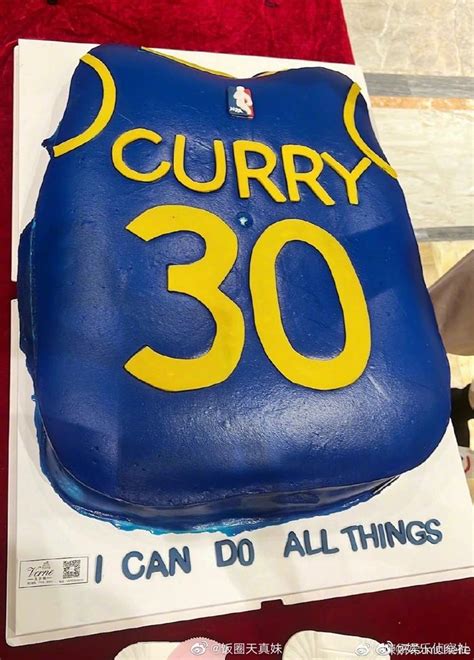 CURRY
30
I CAN DO ALL THINGS
Verne
@饭圈天真妹